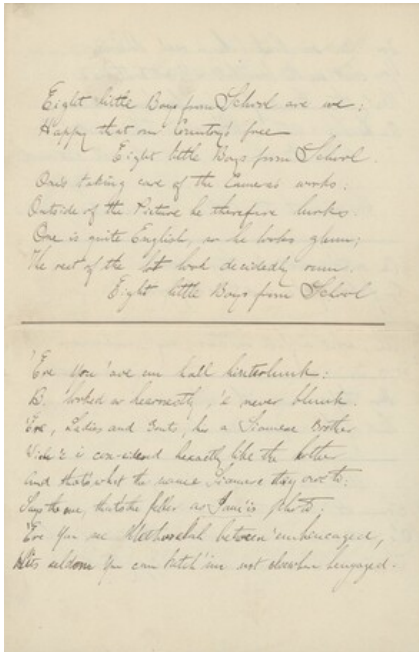 Eight little Boys from School are we;
Happy that our Country's free
Eight little Boys from School.
One's taking care of the Camera's works;
Outside of the Picture he therefore lurks.
One is quite English, so he looks glum;
The rest of the lot look decidedly rum.
Eight little Boys from School
'Ere you 'ave um hall
looked so hearnestly, 'e never blunk.
'Ere, Ladies and Gents, his a Siamese Brother
Wich is considered hexactly like the hother
And that's what the same Siamese they owe to;
Says the one, that's the feller as 'as photo;
'Ere you see Methuselah between 'em
seldom you can catch 'im not elsewhere hengaged.